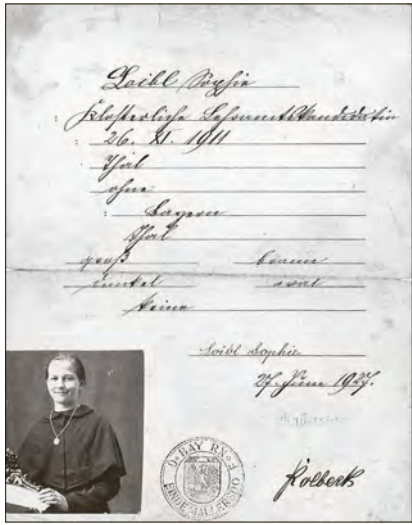 Loibl Sophie
: Klosterliche Lehramtskandidatin
: 26. XI. 1911
Thal
ohne
: Bayern
Thal
groß braun
dunkel oval
keine
Loibl Sophie
27. Juni 1927.
Kolbeck